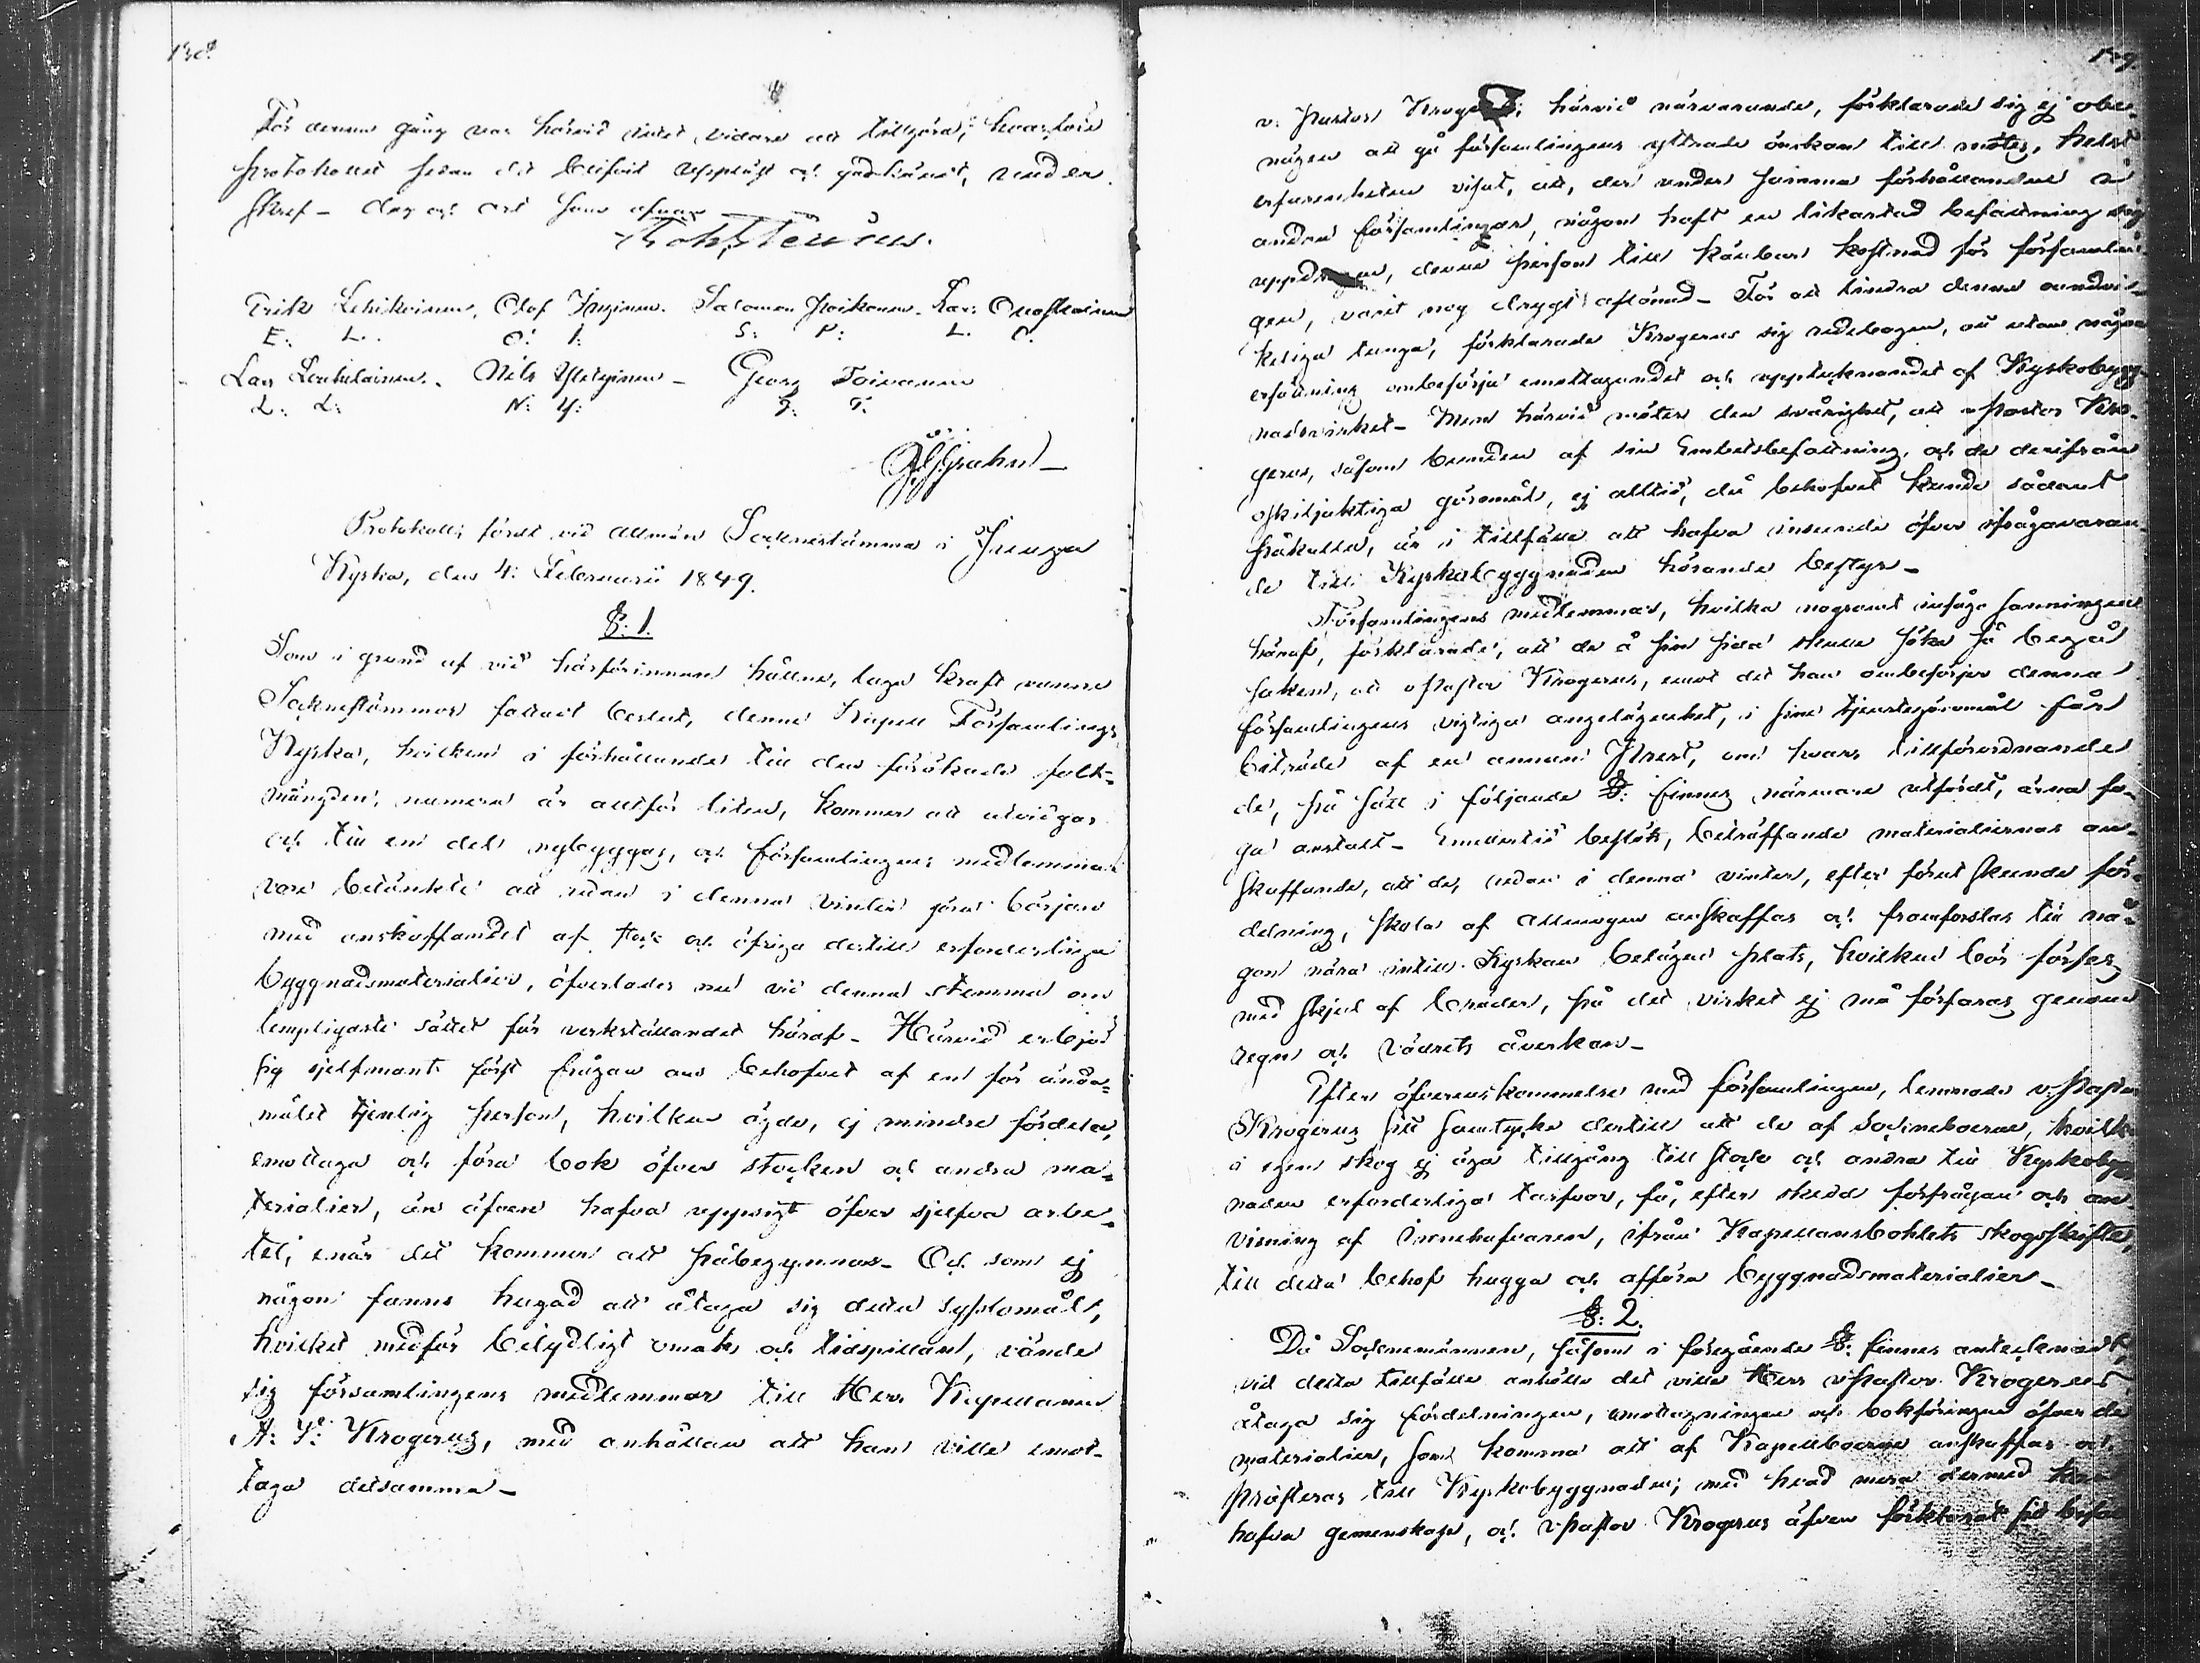 För denna gång var härvid intet vidare att tillgöra, hvarföre
Protokollet sedan det blifvit uppläst och godkändt, under-
skref – dag och ort som ofvan
Erik Lehikoinen, Olof Inginen. Salomon Poikonen. Lars
E: L: O: I: S: P: L: O:
Lars Leukkoinen. Nils – Georg Toivanen
L: L: N: Y: G: T:
Protokoll, fördt vid allmän Sockenstämma i Juuga
Kyrka, den 4: Februarii 1849.
§: 1.
Som i grund af vid härförinnan hållne, laga kraft vunne
Sockenstämmor fattadt beslut, denna Kapell Församlings
Kyrka, hvilken i förhållande till den förökade folk-
mängden, numera är alltför liten, kommer att utvidgas
och till en del nybyggas, och församlingens medlemmar
vore betänkte att redan i denna vinter göra början
med anskaffandet af stock och öfriga dertill erforderliga
byggnadsmaterialier, öfverlades nu vid denna stemma om
lempligaste sättet för verkställandet häraf – Härvid erbjöd
sig sjelfmant först frågan om behofvet af en för ända-
målet tjenlig person, hvilken ägde, ej mindre fördela,
emottaga och föra bok öfver stocken och andra ma-
terialier, än äfven hafva uppsigt öfver sjelfva arbe-
tet, enär det kommer att påbegynnas – Och som ej
någon fanns hugad att åtaga sig detta syslomål,
hvilket medför betydligt omak och tidspillan, vände
sig församlingens medlemmar till Herr Kapellanen
A: F: Krogerus, med anhållan att han ville emot-
taga detsamma –
v. Pastor Krogerus; härvid närvarande, förklarade sig ej obe-
nägen att gå församlingens yttrade önskan till mötes, helst
erfarenheten visat, att, der under samma förhållanden i
andra församlingar, någon haft en likartad befattning sig
uppdragen, denne person till känbar kostnad för försam-
gen, varit nog drygt aflönad – För att lindra denna
keliga tunga, förklarade Krogerus sig redebogen, att utan någon
ersättning ombesörja emottagandet och upptecknandet af Kyrkobygg-
nadsvirket – Men härvid möter den svårighet, att v Pastor Kro-
gerus, såsom bunden af sin Embetsbefattning, och de derifrån
oskiljaktiga göromål, ej alltid, då behofvet kunde sådant
påkalla, är i tillfälle att hafva inseende öfver ifrågavaran-
de till Kyrkobyggnaden hörande bestyr –
Församlingens medlemmar, hvilka nogsamt insågo sanningen
häraf, förklarade, att de å sin sida skulle söka så begå
saken, att v Pastor Krogerus, emot det han ombesörjer denna
församlingens vigtiga angelägenhet, i sina tjenstegöromål får
biträde af en annan Prest, om hvars tillförordnande
de, på sätt i följande §: finnes närmare utfördt, ärna fo-
ga anstalt – Emedlertid beslöts, beträffande materialiernas an-
skaffande, att de, redan i denna vinter, efter förut skeende för-
delning, skola af allmogen anskaffas och framforslas till nå-
gon nära intill Kyrkan belägen plats, hvilken bör förses
med skjul af bräder, på det virket ej må förfaras genom
regn och vädrets åverkan –
Efter öfverenskommelse med församlingen, lemnade v. Pastor
Krogerus sitt samtycke dertill att de af Sockneboerne, hvilka
i egen skog ej äga tillgång till stock och andra till Kyrkobygg-
naden erforderliga tarfvor, få, efter skedd förfrågan och an-
visning af Innehafvaren, ifrån Kapellansbohlets skogsskifte,
till detta behof hugga och afföra byggnadsmaterialier –
§: 2.
Då Sockenemännen, såsom i föregående §: finnes antecknadt,
vid detta tillfälle anhölle det ville Herr v Pastor Krogerus
åtaga sig fördelningen, emottagningen och bokföringen öfver de
materialier, som komma att af Kapellboerne anskaffas och
presteras till Kyrkobyggnaden; med hvad mera dermed kan
hafva gemenskap, och v. Pastor Krogerus äfven förklarat sig